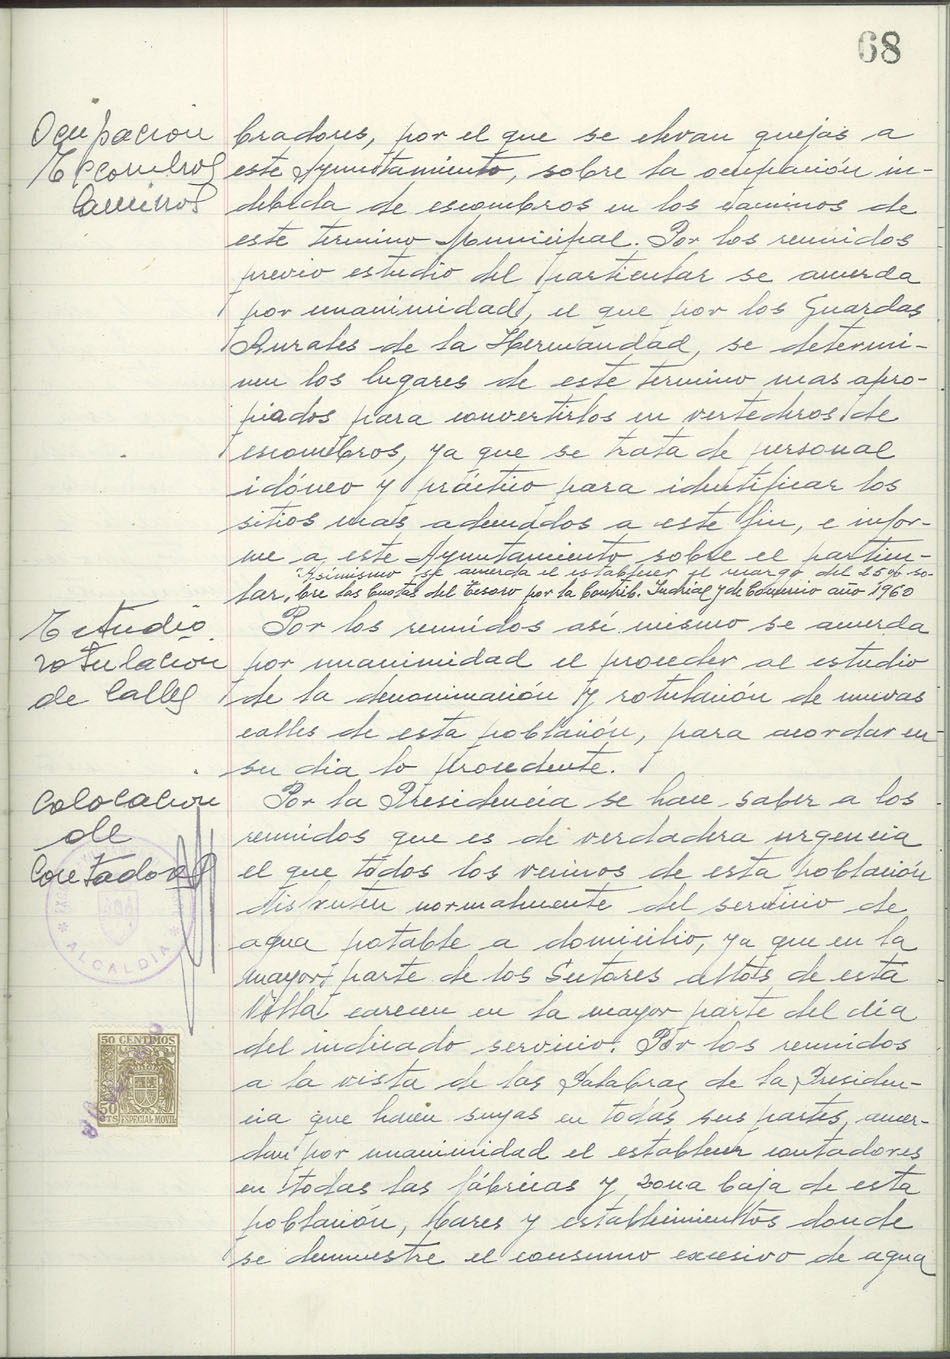 68
Ocupacion
Escombros
Caminos
bradores, por el que se elevan quejas a
este Ayuntamiento, sobre la ocupación in-
debida de escombros en los caminos de
este termino Municipal. Por los reunidos
previo estudio del particular se acuerda
por unanimidad, el que por los Guardas
Rurales de la Hermandad, se determi-
nen los lugares de este termino mas apro-
piados para convertirlos en vertederos de
escombros, ya que se trata de personal
idóneo y práctico para identificar los
sitios mas adecuados a este fin, e infor-
me a este Ayuntamiento sobre el particu-
lar. Asimismo se acuerda el establecer el recargo del 25% so-
bre las Cuotas del Tesoro por la Contrib. Indrial y de Comercio año 1960
Estudio
rotulacion
de Calles
Por los reunidos así mismo se acuerda
por unanimidad el proceder al estudio
de la denominación y rotulación de nuevas
calles de esta población, para acordar en
su dia lo procedente.
Colocacion
de
Contadores
Por la Presidencia se hace saber a los
reunidos que es de verdadera urgencia
el que todos los vecinos de esta población
disfruten normalmente del servicio de
agua potable a domicilio, ya que en la
mayor parte de los Sectores altos de esta
Villa carecen en la mayor parte del dia
del indicado servicio. Por los reunidos
a la vista de las Palabras de la Presiden-
cia que hacen suyas en todas sus partes, acuer-
dan por unanimidad el establecer contadores
en todas las fábricas y zona baja de esta
población, bares y establecimientos donde
se demuestre el consumo excesivo de agua
ALCALDIA
50 CENTIMOS
50
CTS ESPECIAL MOVIL